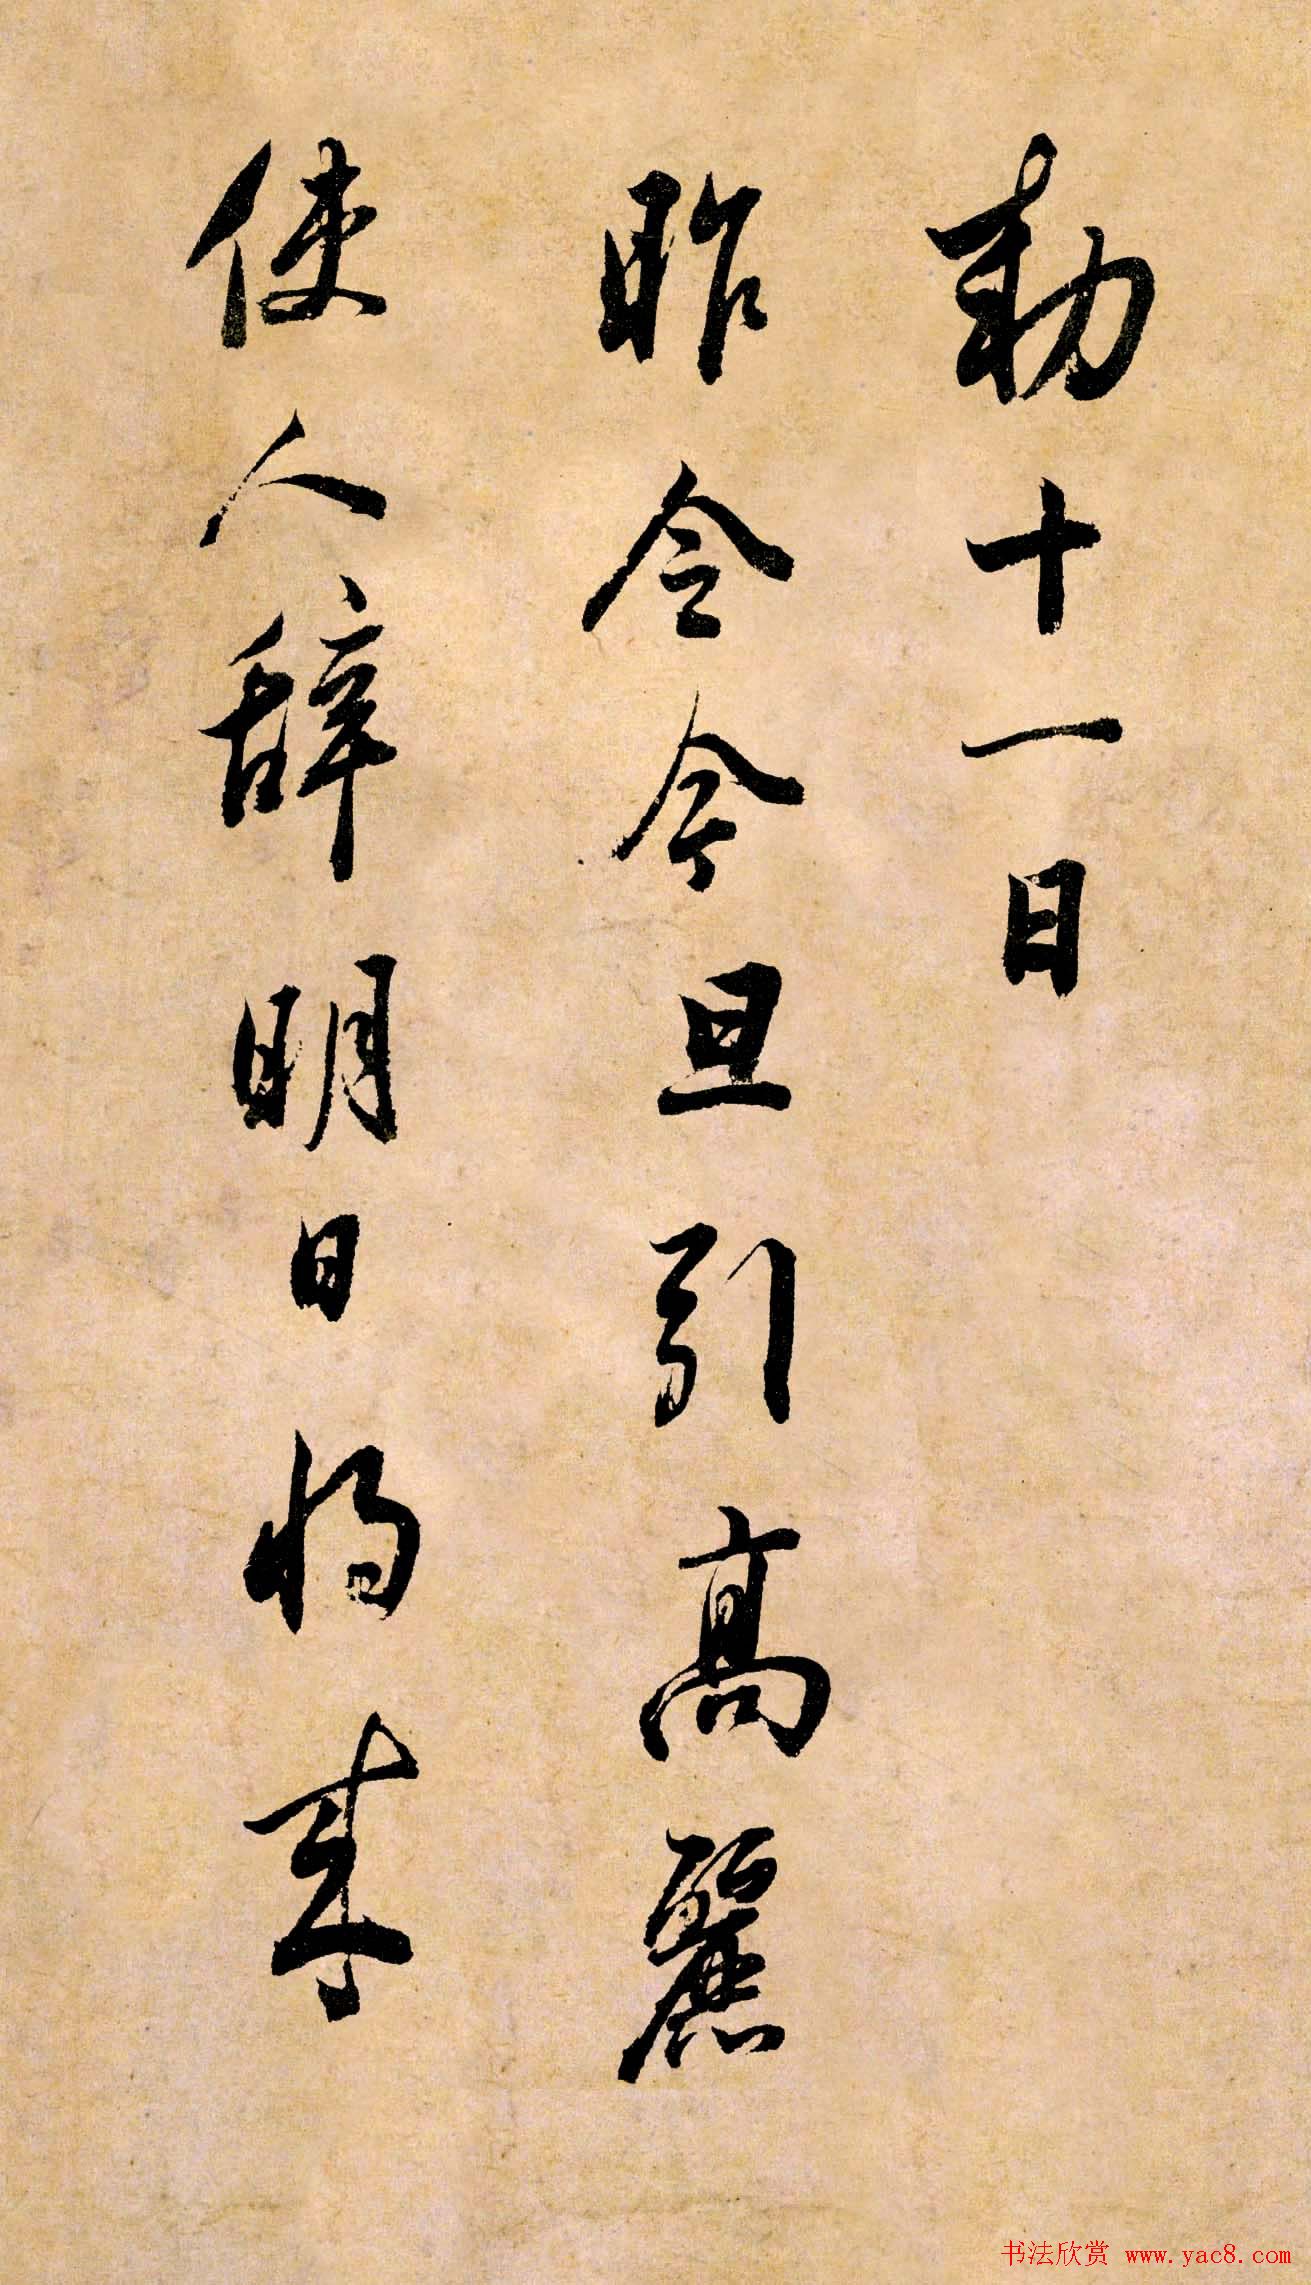 勅十一日
昨令今旦引高麗
使人辞明日将来
书法欣赏 www.yac8.com